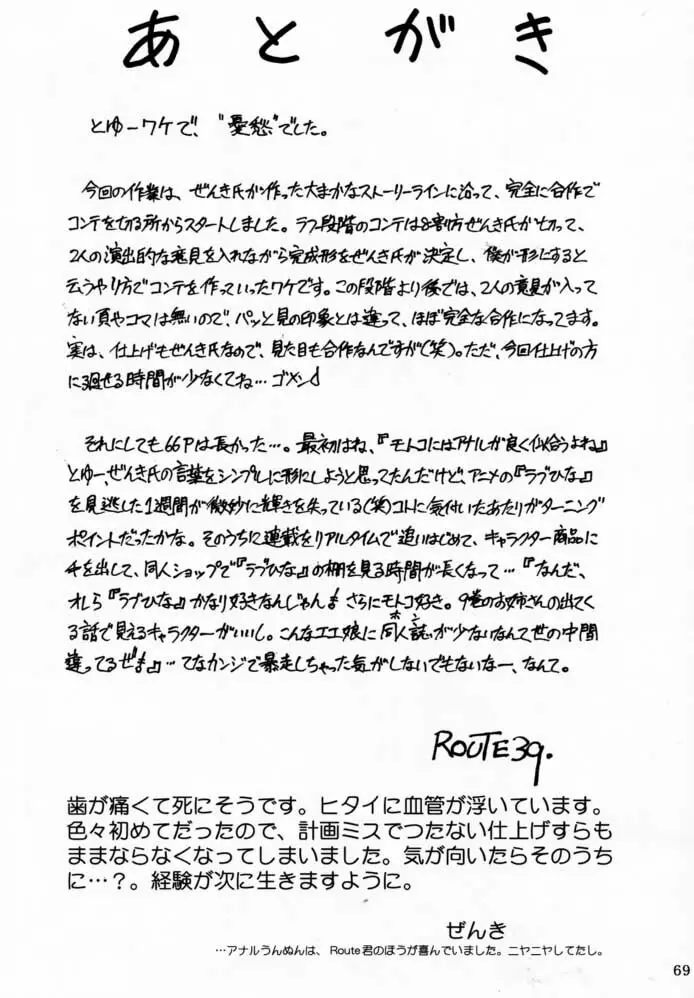 あとがき
とゆーワケで、“憂愁”でした。
今回の作業は、ぜんき氏が作った大まかなストーリーラインに沿って、完全に合作で
コンテを切る所からスタートしました。ラフ段階のコンテは8割方ぜんき氏が切って、
2人の演出的な意見を入れながら完成形をぜんき氏が決定し、僕が形にすると
云うやり方でコンテを作っていったワケです。この段階より後では、2人の意見が入って
ない頁やコマは無いので、パッと見の印象とは違って、ほぼ完全な合作になってます。
実は、仕上げもぜんき氏なので、見た目も合作なんですが(笑)。ただ、今回仕上げの方
に廻せる時間が少なくてね…ゴメン
それにしても66Pは長かった…。最初はね、『モトコにはアナルが良く似合うよね』
とゆー、ぜんき氏の言葉をシンプルに形にしようと思ってたんだけど、アニメの『ラブひな』
を見逃した1週間が微妙に輝きを失っている(笑)コトに気付いたあたりがターニング
ポイントだったかな。そのうちに連載をリアルタイムで追いはじめて、キャラクター商品に
手を出して、同人ショップで『ラブひな』の棚を見る時間が長くなって…『なんだ、
オレら『ラブひな』かなり好きなんじゃん さらにモトコ好き。9巻のお姉さんの出てく
る話で見えるキャラクターがいいし。こんなエエ娘に同人誌が少ないなんて世の中間
ホン
違ってるぜ』…てなカンジで暴走しちゃった気がしないでもないなー、なんて。
ROUTE39.
歯が痛くて死にそうです。ヒタイに血管が浮いています。
色々初めてだったので、計画ミスでつたない仕上げすらも
ままならなくなってしまいました。気が向いたらそのうち
に…?。経験が次に生きますように。
ぜんき
…アナルうんぬんは、Route君のほうが喜んでいました。ニヤニヤしてたし。
69